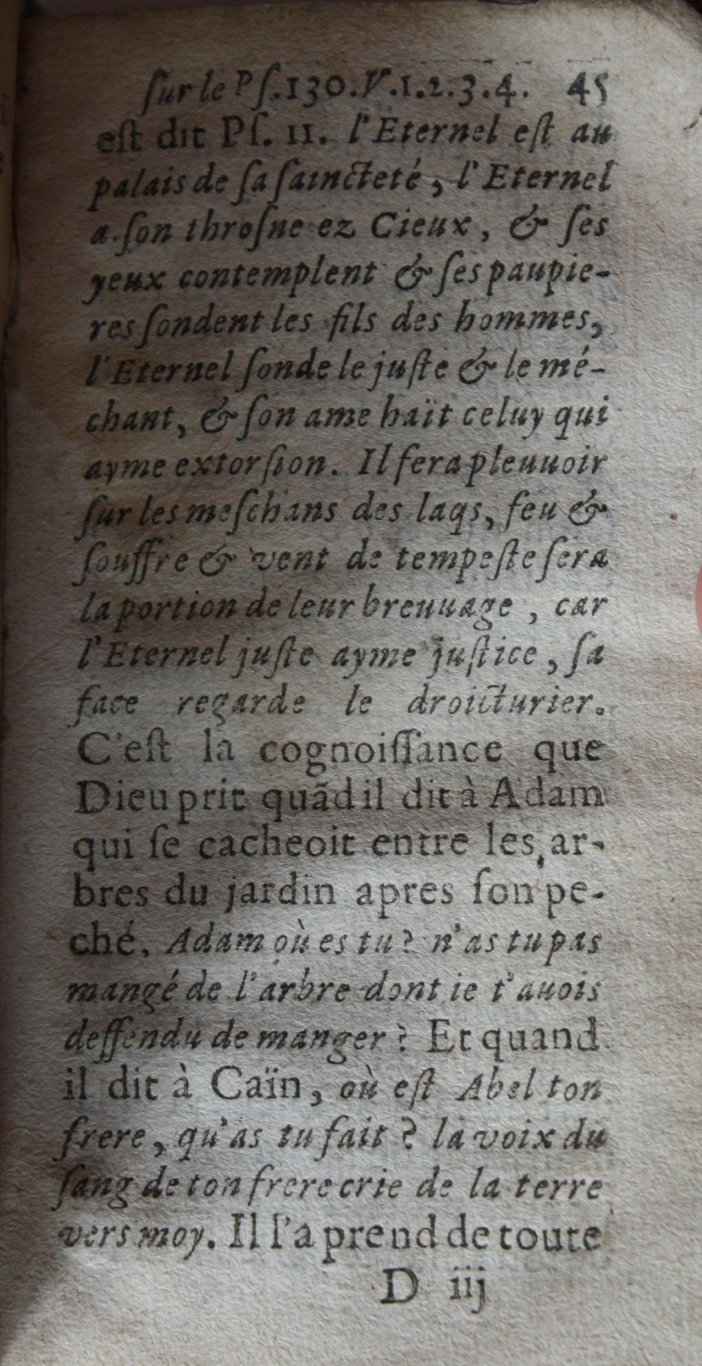 ſur le Pſ.130.V.1.2.3.4. 45
eſt dit Pſ. 11. l'Eternel eſt au
palais de ſa ſaincteté, l'Eternel
a ſon throſne ez Cieux, & ſes
yeux contemplent & ſes paupie-
res ſondent les fils des hommes,
l'Eternel ſonde le juſte & le mé-
chant, & ſon ame haït celuy qui
ayme extorſion. Il fera pleuuoir
ſur les meſchans des laqs, feu &
ſouffre & vent de tempeſte ſera
la portion de leur breuuage, car
l'Eternel juſte ayme juſtice, ſa
face regarde le droicturier.
C'eſt la cognoiſſance que
Dieu prit quãd il dit à Adam
qui ſe cacheoit entre les ar-
bres du jardin apres ſon pe-
ché. Adam où es tu? n'as tu pas
mangé de l'arbre dont ie t'auois
deffendu de manger? Et quand
il dit à Caïn, où eſt Abel ton
frere, qu'as tu fait? la voix du
ſang de ton frere crie de la terre
vers moy. Il l'a prend de toute
D iij